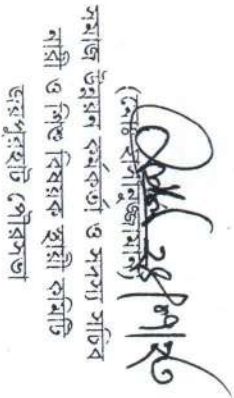 (মোঃ
সমাজ উন্নয়ন কর্মকর্তা ও সদস্য সচিব
নারী ও শিশু বিষয়ক স্থায়ী কমিটি
জয়পুরহাট পৌরসভা